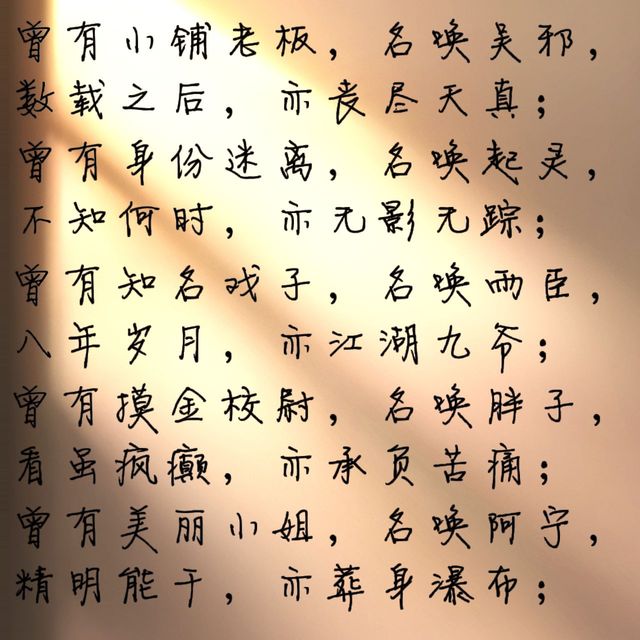 曾有小铺老板，名唤吴邪，
数载之后，亦丧尽天真；
曾有身份迷离，名唤起灵，
不知何时，亦无影无踪；
曾有知名戏子，名唤雨臣，
八年岁月，亦江湖九爷；
曾有摸金校尉，名唤胖子，
看虽疯癫，亦承负苦痛；
曾有美丽小姐，名唤阿宁，
精明能干，亦葬身瀑布；